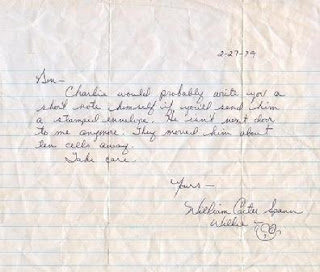 2-27-79
Charlie would probably write you a
short note himself if you'd send him
a stamped envelope. He isn't next door
to me anymore. They moved him about
ten cells away.
Take care.
Yours –
William Carter Spann
Willie